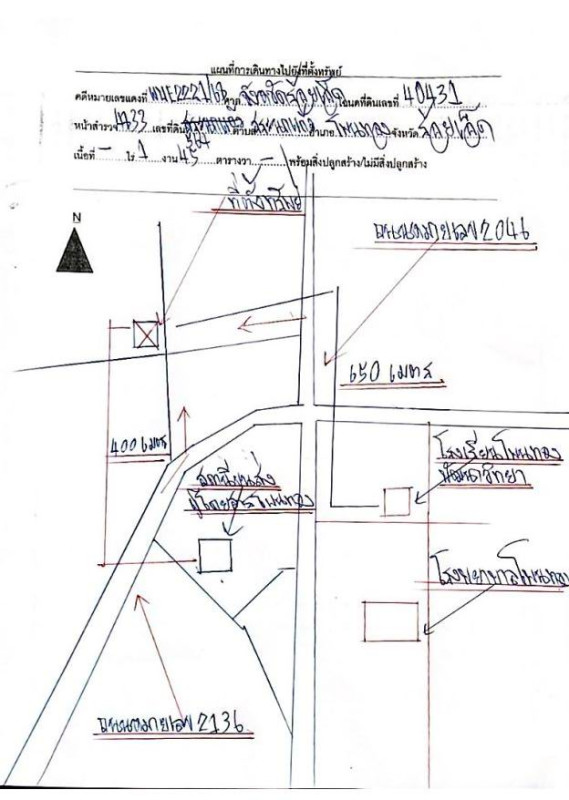 แผนที่การเดินทางไปยังที่ตั้งทรัพย์
คดีหมายเลขแดงที่ ศาล จังหวัดร้อยเอ็ด โฉนดที่ดินเลขที่ 40431
หน้าสำรวจ 4733 เลขที่ดิน 364 ตำบล สระนกแก้ว อำเภอ โพนทอง จังหวัด ร้อยเอ็ด
เนื้อที่ - ไร่ 1 งาน 45 ตารางวา - พร้อมสิ่งปลูกสร้าง/ไม่มีสิ่งปลูกสร้าง
ที่ตั้งทรัพย์
N
ถนนหมายเลข 2046
650 เมตร
400 เมตร
โรงเรียนโพนทอง
พัฒนาวิทยา
สถานีขนส่ง
ผู้โดยสารโพนทอง
โรงพยาบาลโพนทอง
ถนนหมายเลข 2136